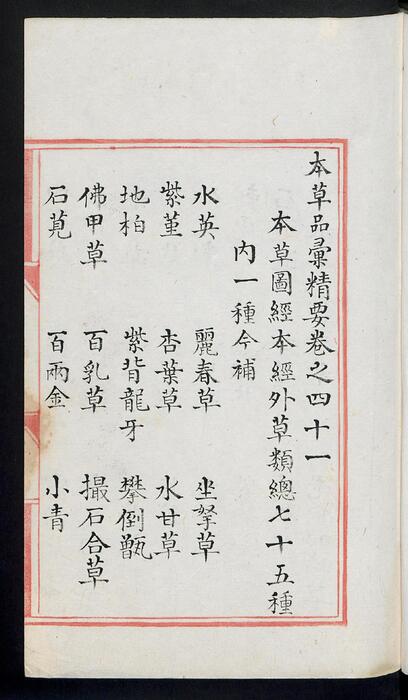 本草品彙精要卷之四十一
本草圖經本經外草類總七十五種
內一種今補
水英 麗春草 坐拏草
紫堇 杏葉草 水甘草
地柏 紫背龍牙 攀倒甑
佛甲草 百乳草 撮石合草
石莧 百兩金 小青